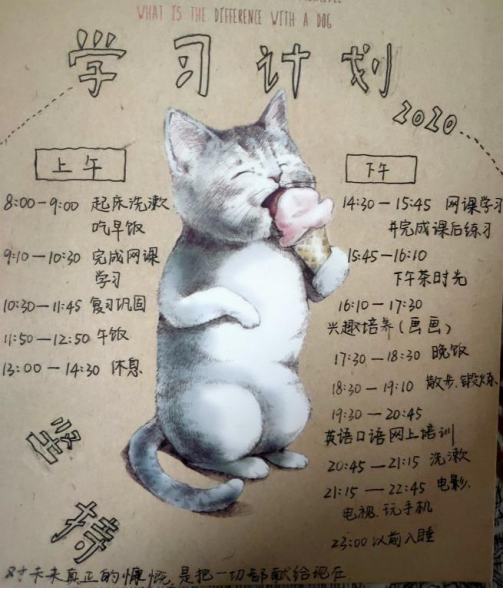 WHAT IS THE DIFFERENCE WITH A DOG
学习计划
2020
上午
8:00—9:00 起床洗漱
吃早饭
9:10—10:30 完成网课
学习
10:30—11:45 复习巩固
11:50—12:50 午饭
13:00—14:30 休息
坚
持
下午
14:30—15:45 网课学习
并完成课后练习
15:45—16:10
下午茶时光
16:10—17:30
兴趣培养(画画)
17:30—18:30 晚饭
18:30—19:10 散步.锻炼
19:30—20:45
英语口语网上培训
20:45—21:15 洗漱
21:15—22:45 电影.
电视.玩手机
23:00以前入睡
对未来真正的慷慨,是把一切都献给现在